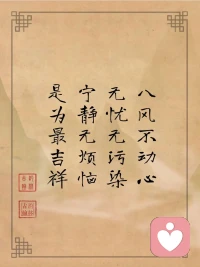 八风不动心
无忧无污染
宁静无烦恼
是为最吉祥